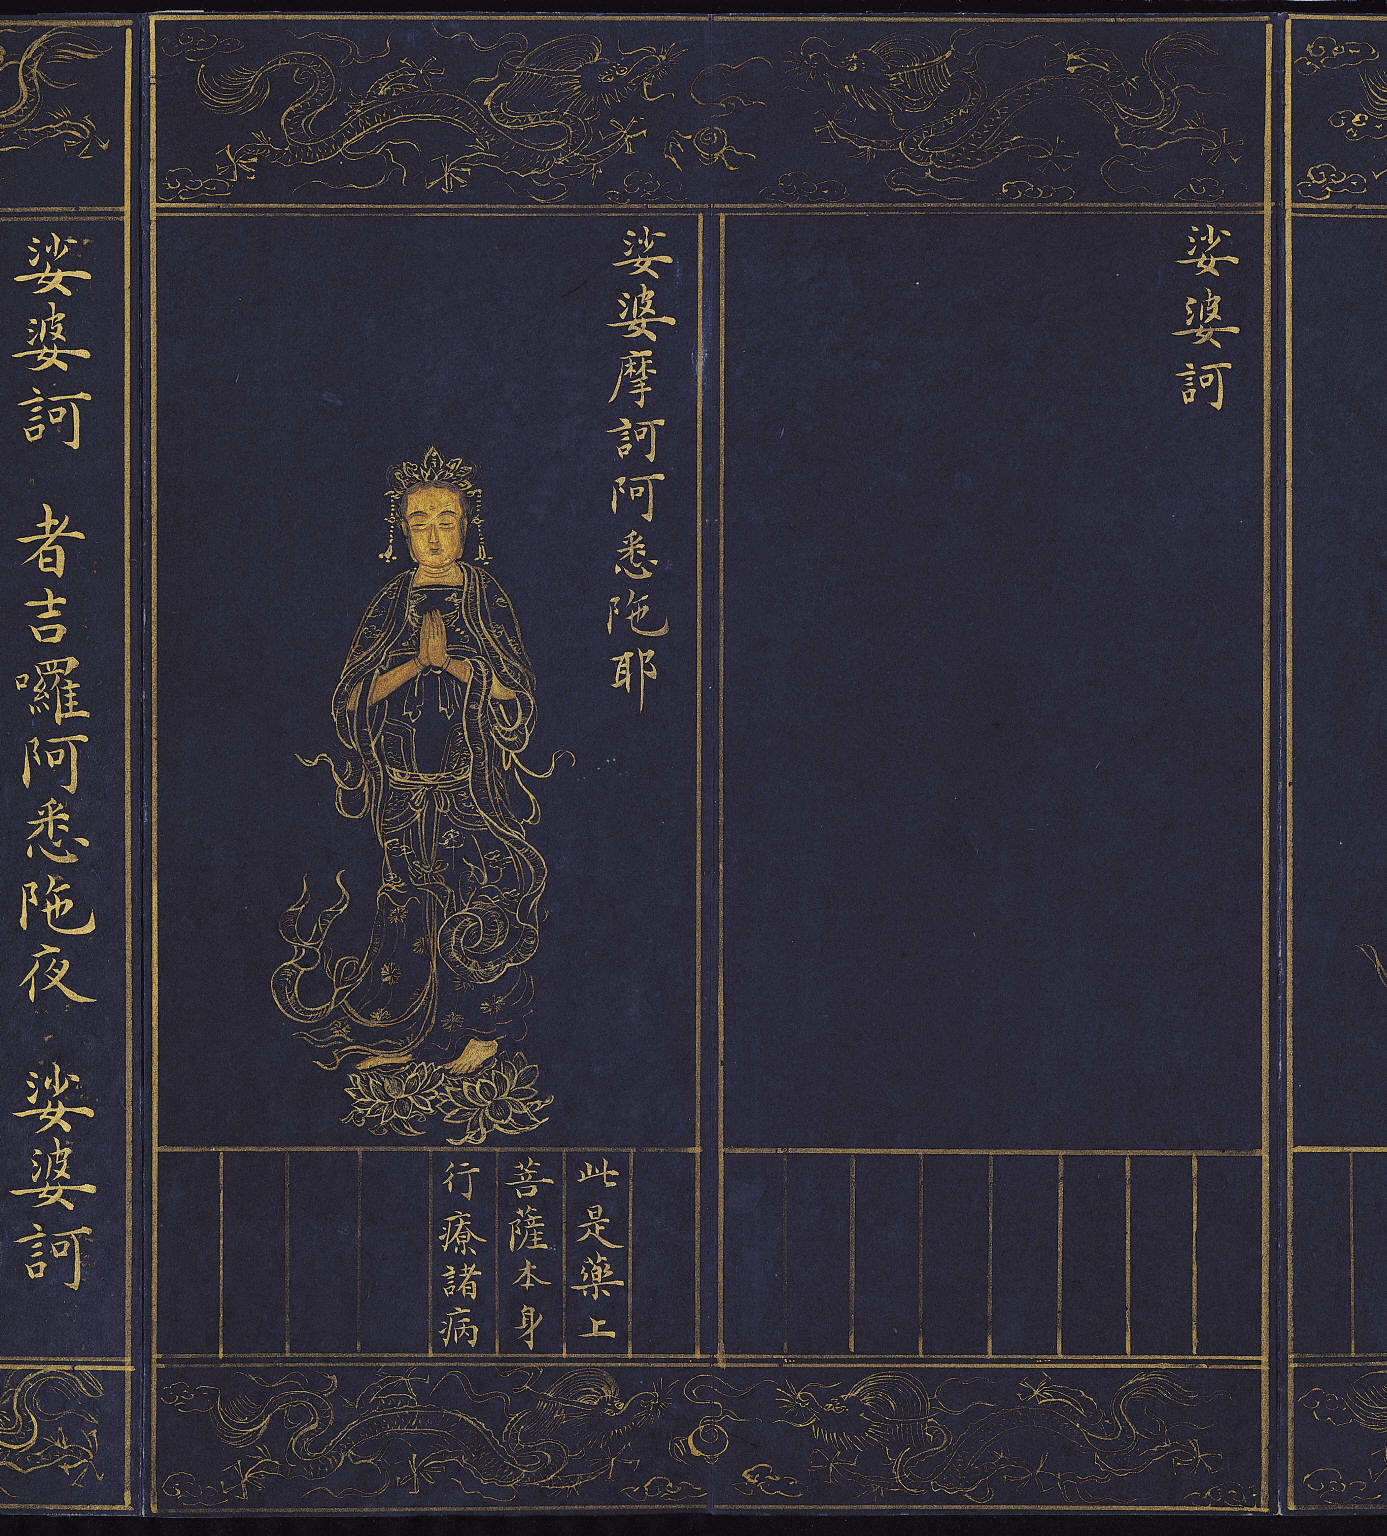 娑婆訶
娑婆摩訶阿悉陁耶
此是藥上
菩薩本身
行療諸病
娑婆訶 者吉囉阿悉陁夜 娑婆訶